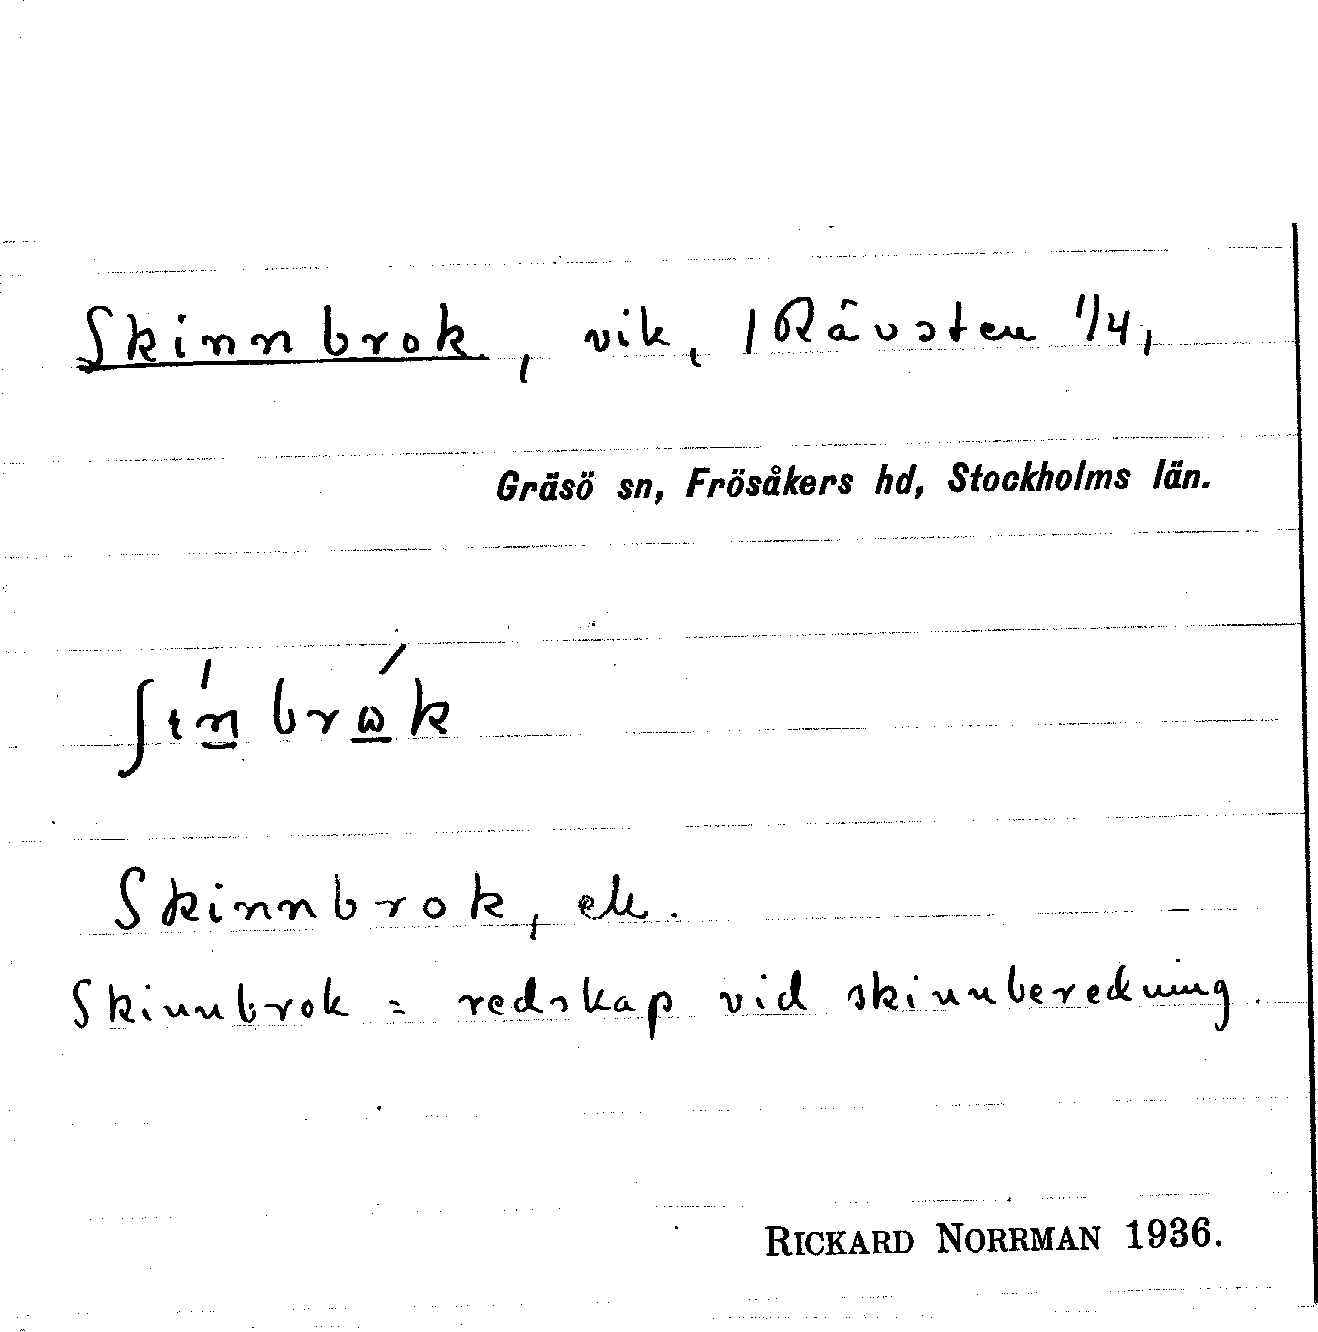 Skinnbrok, vik, 1 Rävsten 1/4,
Gräsö sn, Frösåkers hd, Stockholms län.
Skinnbrok, ek.
Skinnbrok = redskap vid skinnberedning.
RICKARD NORRMAN 1936.